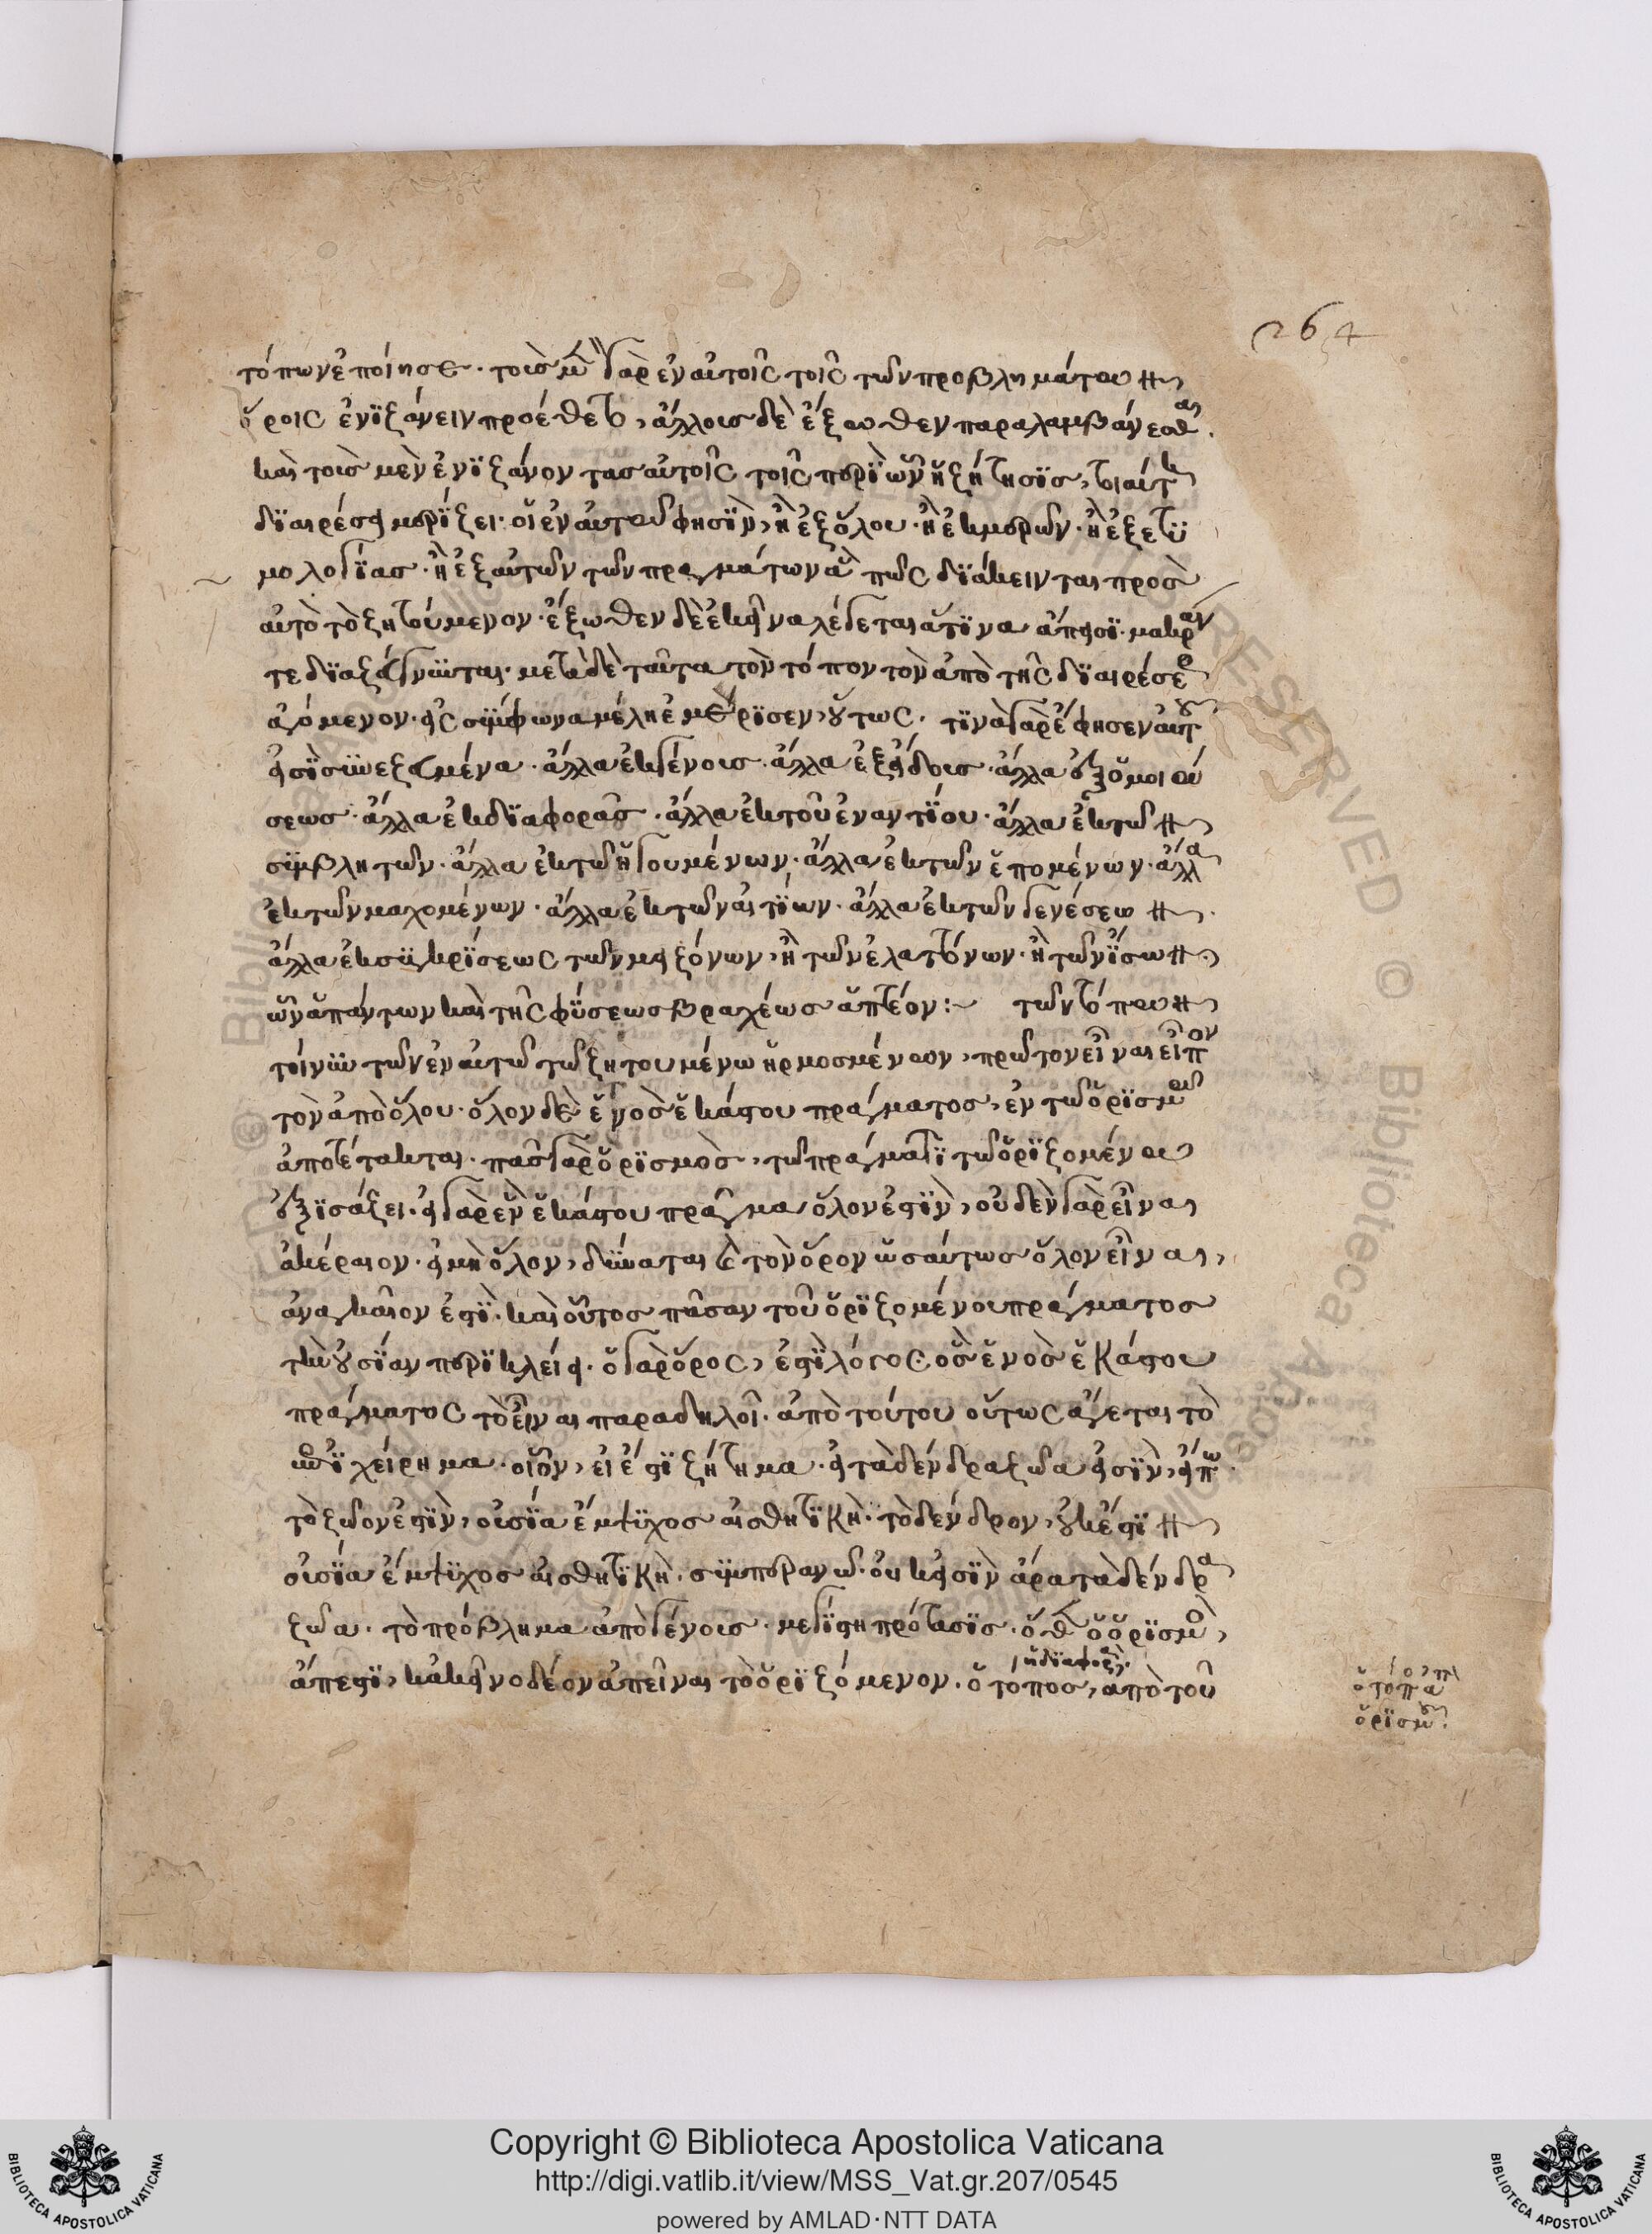 264
τόπων ἐποίησε· τοῖς μὲν γὰρ ἐν αὐτοῖς τοῖς τῶν προβλημάτων
ὅροις ἐνιζάνειν προέθετο, ἄλλοις δὲ ἔξωθεν παραλαμβάνεσθαι.
καὶ τοὺς μὲν ἐνιζάνοντας αὐτοῖς τοῖς περὶ ὧν ἡ ζήτησις, τοιαύτη
διαιρέσει μερίζει· οἱ ἐν αὐτῶ φησὶν, ἢ ἐξ ὅλου· ἢ ἐκ μερῶν· ἢ ἐξ ετυ
μολογίας· ἢ ἐξ αὐτῶν τῶν πραγμάτων ἃ πῶς διάκεινται πρὸς
αὐτὸ τὸ ζητούμενον· ἔξωθεν δὲ ἐκεῖνα λέγεται ἅτινα ἄπεισι· μακράν
τε διαζεύγνυται· μετὰ δὲ ταῦτα τὸν τόπον τὸν ἀπὸ τῆς διαιρέσεως
ἀγόμενον· εἰς σύμφωνα μέλη ἐμέρισεν, οὕτως· τινὰ γὰρ ἔφησεν αὐτοῦ
εἰσὶ συνεζευγμένα· ἄλλα ἐκ γένους· ἄλλα ἐξ εἴδους· ἄλλα ἐξ ὁμοιώ
σεως· ἄλλα ἐκ διαφορᾶς· ἄλλα ἐκ τοῦ ἐναντίου· ἄλλα ἐκ τῶν
συμβλητῶν· ἄλλα ἐκ τῶν ἡγουμένων· ἄλλα ἐκ τῶν ἑπομένων· ἄλλα
ἐκ τῶν μαχομένων· ἄλλα ἐκ τῶν αἰτίων· ἄλλα ἐκ τῶν γενέσεων.
ἄλλα ἐκ συγκρίσεως τῶν μειζόνων, ἢ τῶν ἐλαττόνων· ἢ τῶν ἴσων·
ὧν ἁπάντων καὶ τῆς φύσεως βραχέως ἁπτέον:~ τῶν τόπων
τοίνυν τῶν ἐν αὐτῶ τῶ ζητουμένω ἡρμοσμένων, πρῶτον εἶναι εἶπον
τὸν ἀπὸ ὅλου· ὅλον δὲ ἑνὸς ἑκάστου πράγματος, ἐν τῶ ὁρισμῶ
ἀποτέτακται· πᾶς γὰρ ὁρισμὸς, τῶ πράγματι τῶ ὁριζομένω
ἐξισάζει· εἰ γὰρ ἓν ἑκάστου πρᾶγμα ὅλον ἐστὶν, οὐδὲν γὰρ εἶναι
ἀκέραιον· εἰ μὴ ὅλον, δύναται καὶ τὸν ὅρον ὡσαύτως ὅλον εἶναι,
ἀναγκαῖον ἐστὶ· καὶ οὗτος πᾶσαν τοῦ ὁριζομένου πράγματος
τὴν οὐσίαν περικλείει· ὁ γὰρ ὅρος, ἐστὶ λόγος ὃς ἑνὸς ἑκάστου
πράγματος τὸ εἶναι παραδηλοῖ· ἀπὸ τούτου οὕτως ἄγεται τὸ
ἐπιχείρημα· οἷον, εἰ ἔστι ζήτημα· εἰ τὰ δένδρα ζῶα εἰσὶν, εἴπω
τὸ ζῶον ἐστὶν, οὐσία ἔμψυχος αἰσθητικὴ· τὸ δένδρον, οὐκ ἔστιν
οὐσία ἔμψυχος αἰσθητικὴ· συμπεραίνω· οὐκ εἰσὶν ἄρα τὰ δένδρα
ζῶα· τὸ πρόβλημα ἀπὸ γένους· μεγίστη πρότασις· ὅθεν ὁ ὁρισμὸς,
ἄπεστι, κἀκεῖνο δέον ἀπεῖναι τὸ ὁριζόμενον· ὁ τόπος, ἀπὸ τοῦ
ὁ τόπος ἀπὸ
ὁρισμοῦ.
Copyright © Biblioteca Apostolica Vaticana
http://digi.vatlib.it/view/MSS_Vat.gr.207/0545
powered by AMLAD·NTT DATA
BIBLIOTECA APOSTOLICA VATICANA
BIBLIOTECA APOSTOLICA VATICANA